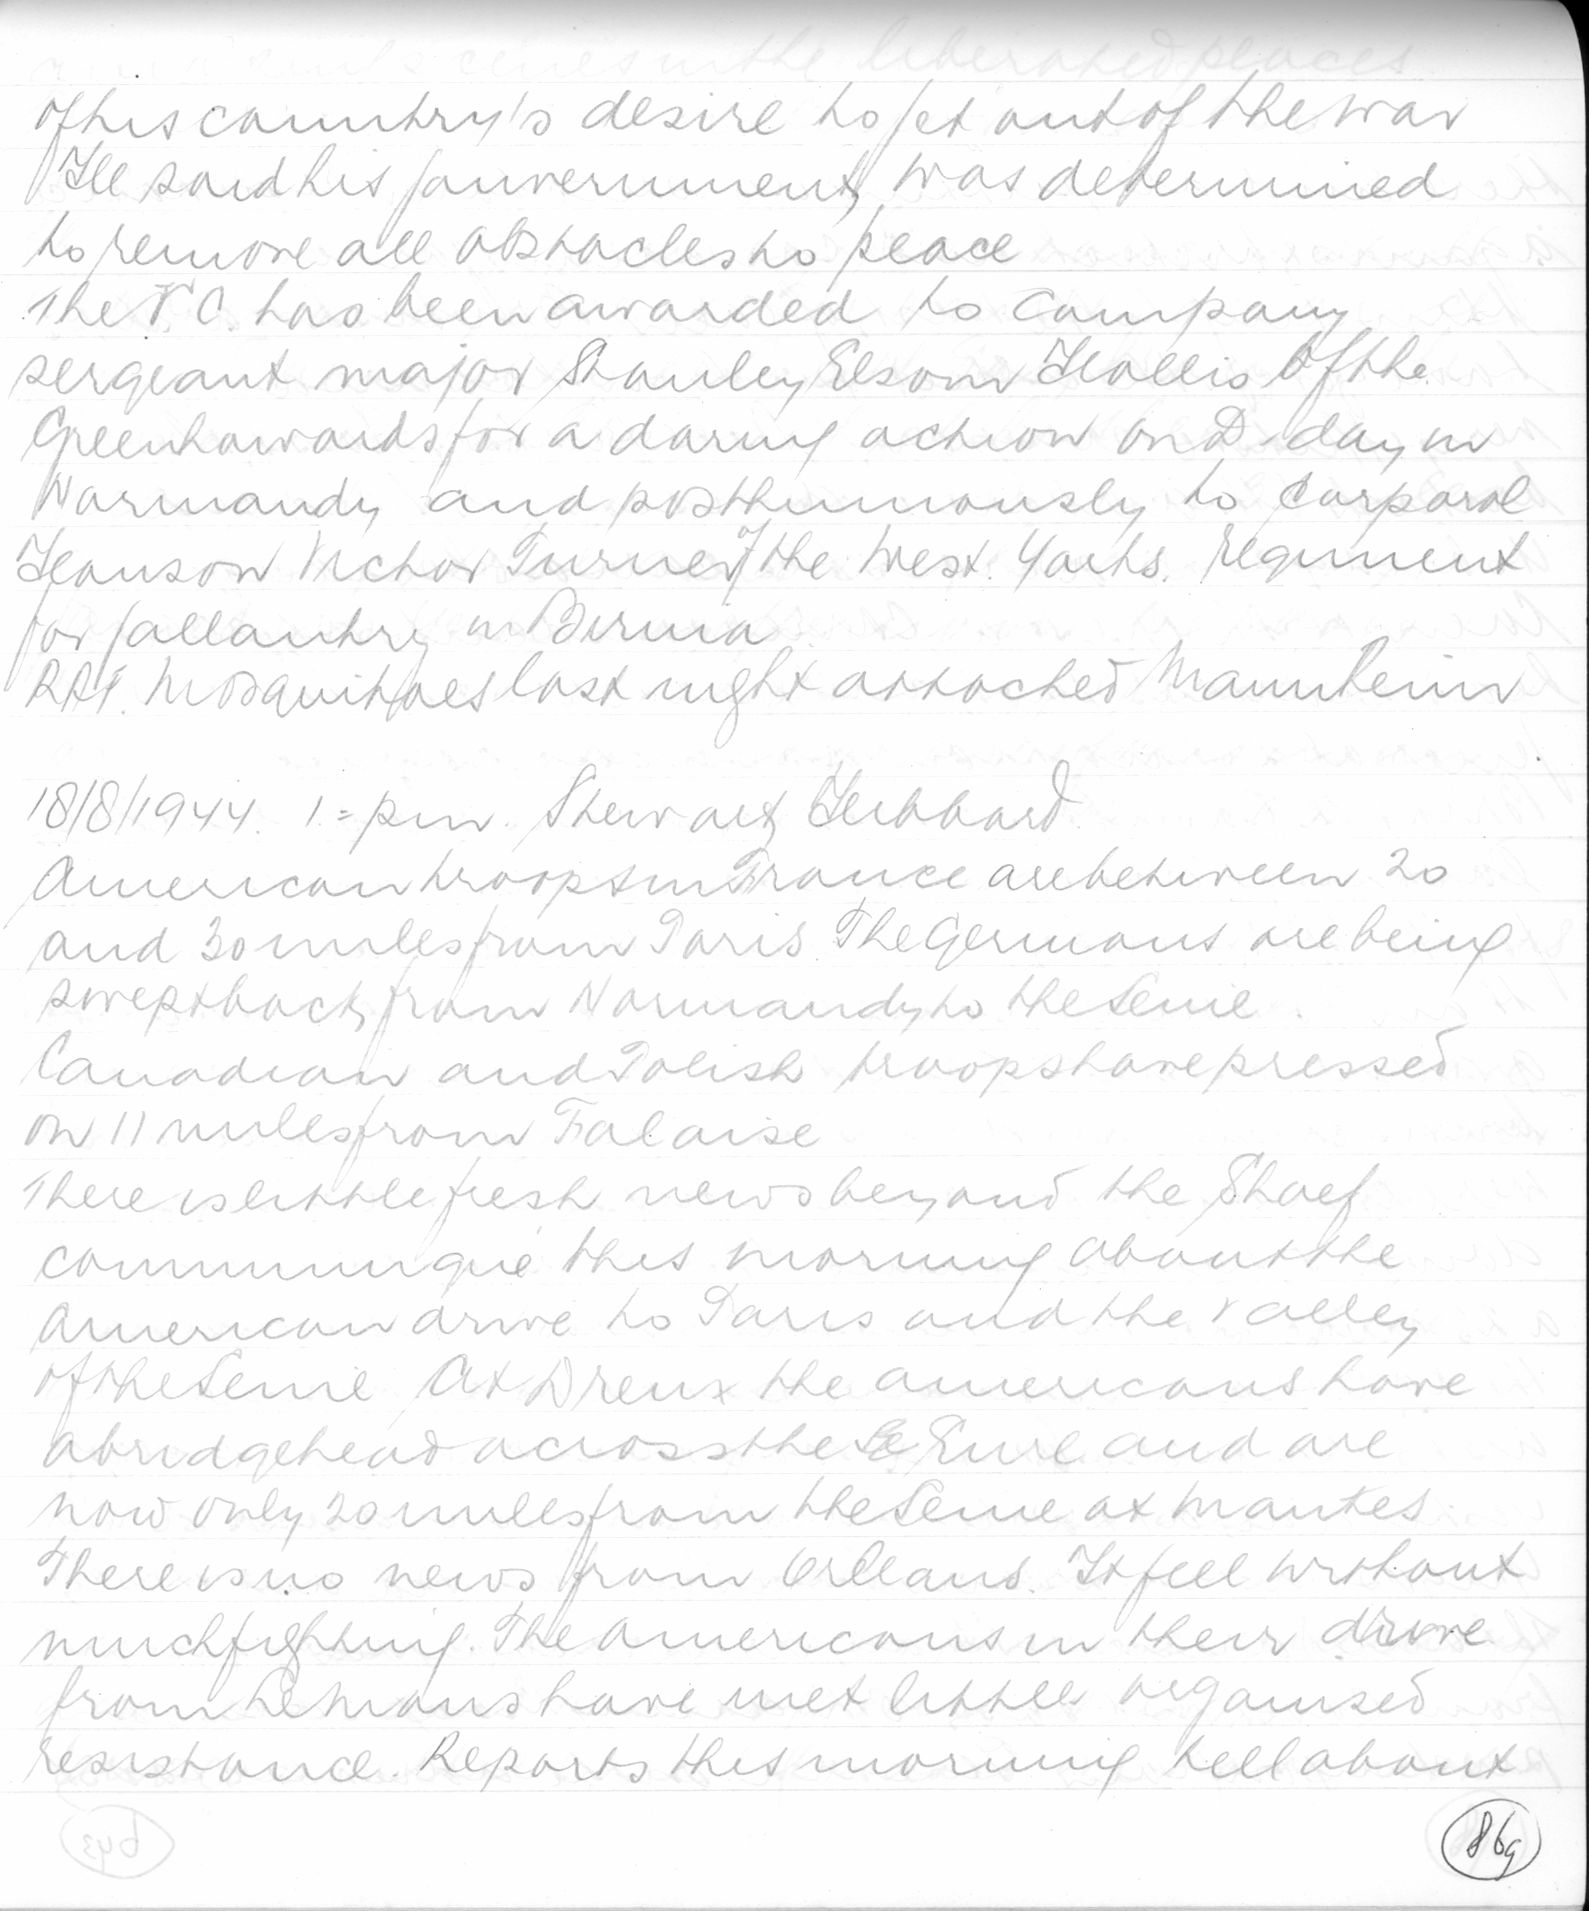 of his country's desire to get out of the war
He said his gouvernment was determined
to remove all obstacles to peace
The V.C. has been awarded to company
sergeant major Stanley Elsom Hollis of the
Greenhowards for a daring action on D-day in
Normandy and posthumously to Corporal
Hanson Victor Turner of the West. Yorks. regiment
for gallantry in Birma
RAF. Mosquitoes last night attacked Mannheim
18/8/1944. 1.= pm. Stewart Hibbard
American troops in France are between 20
and 30 miles from Paris The Germans are being
swept back from Normandy to the Seine.
Canadian and Polish troops have pressed
on 11 miles from Falaise
There is little fresh news beyond the Shaef
communiqué this morning about the
American drive to Paris and the valley
of the Seine At Dreux the americans have
a bridgehead across the Eure and are
now only 20 miles from the Seine at Mantes.
There is no news from Orleans. It fell without
much fighting. The Americans in their drive
from Le Mans have met little organised
resistance. Reports this morning tell about
869